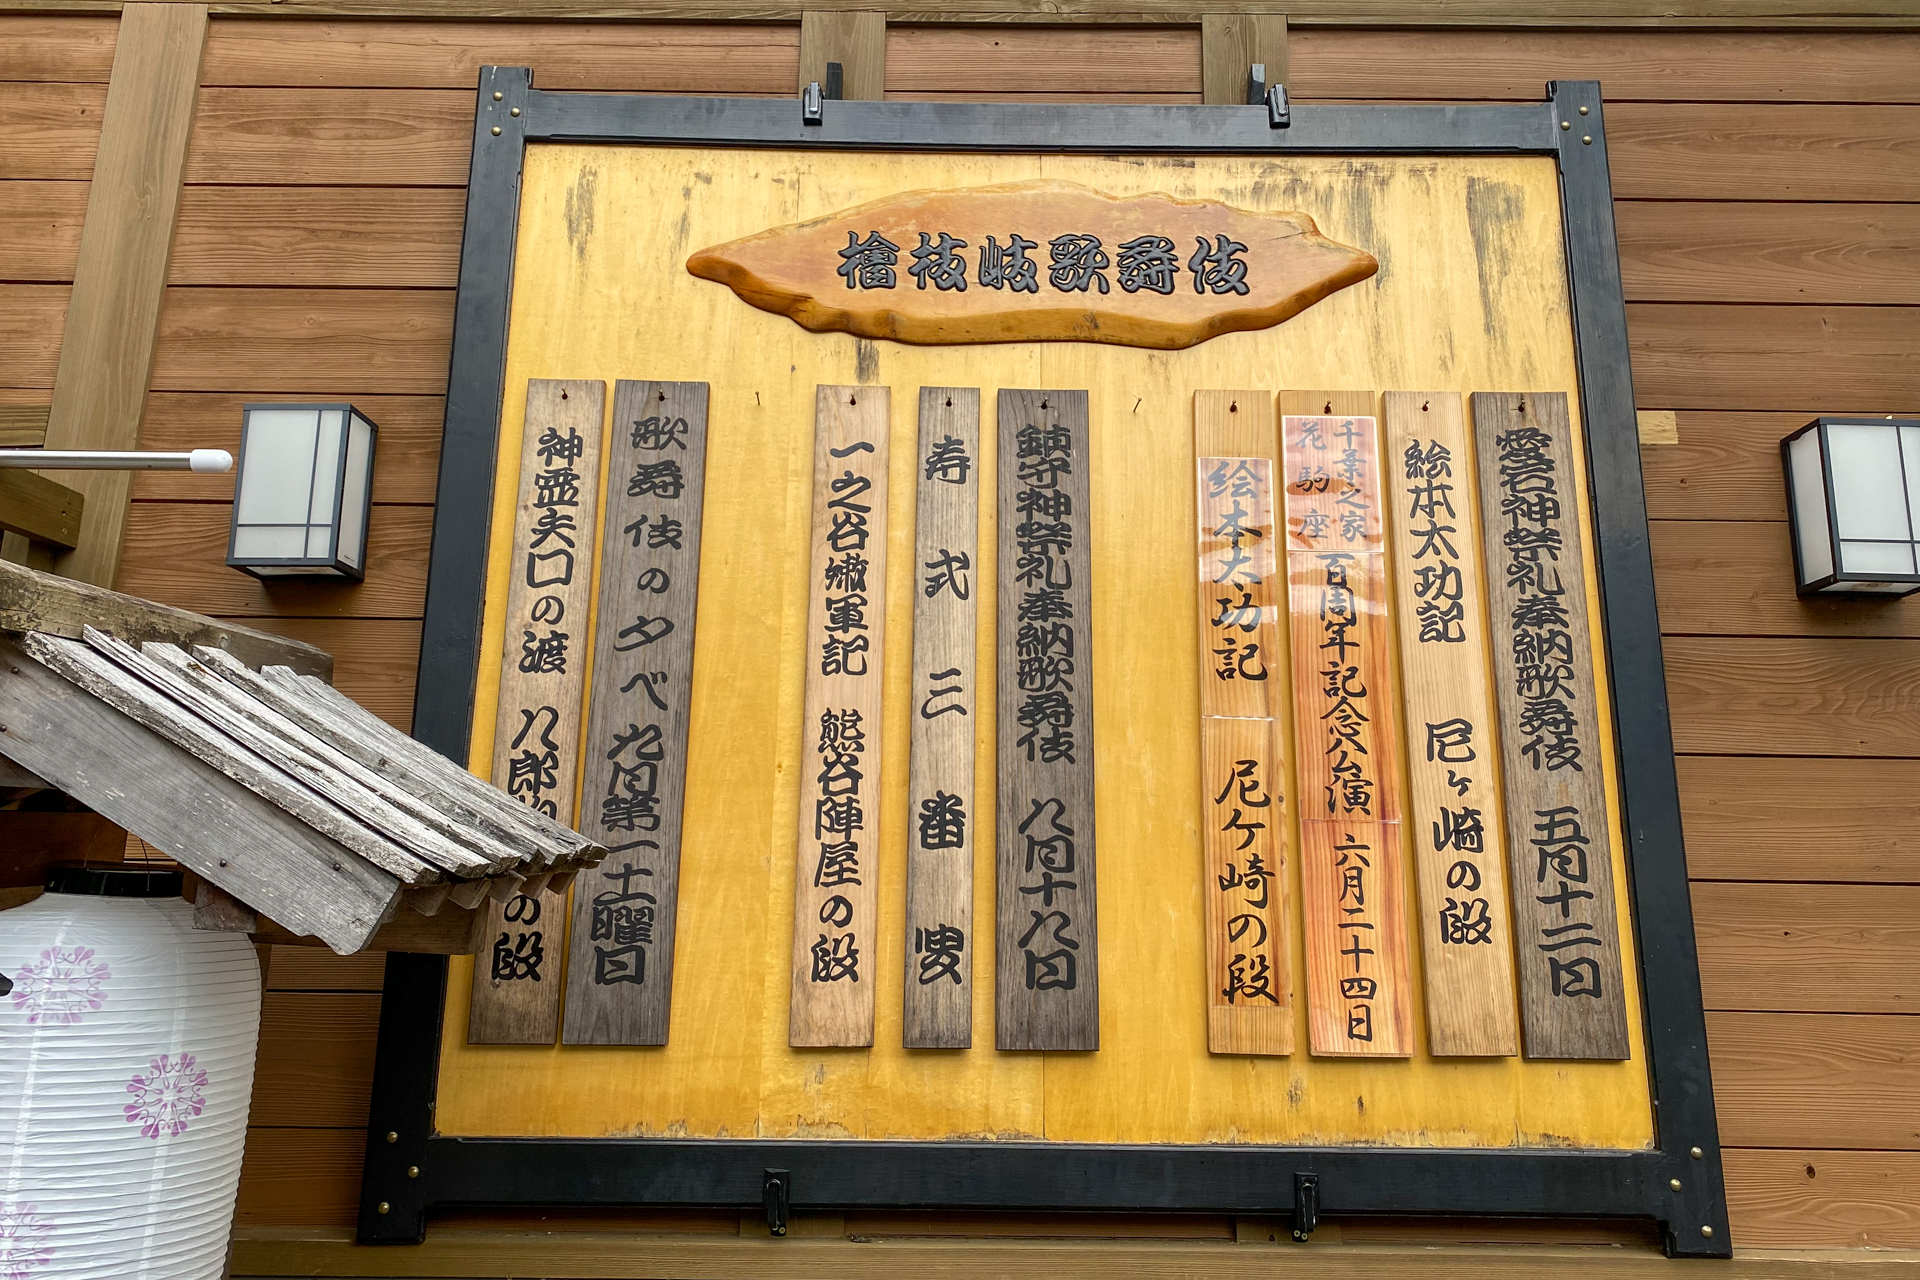 檜枝岐歌舞伎
愛宕神祭礼奉納歌舞伎 五月十二日
絵本太功記 尼ヶ崎の段
千葉之家
花駒座
百周年記念公演 六月二十四日
絵本太功記 尼ケ崎の段
鎮守神祭礼奉納歌舞伎 八月十八日
寿式三番叟
一之谷嫩軍記 熊谷陣屋の段
歌舞伎の夕べ 九月第一土曜日
神霊矢口の渡 八郎 の段